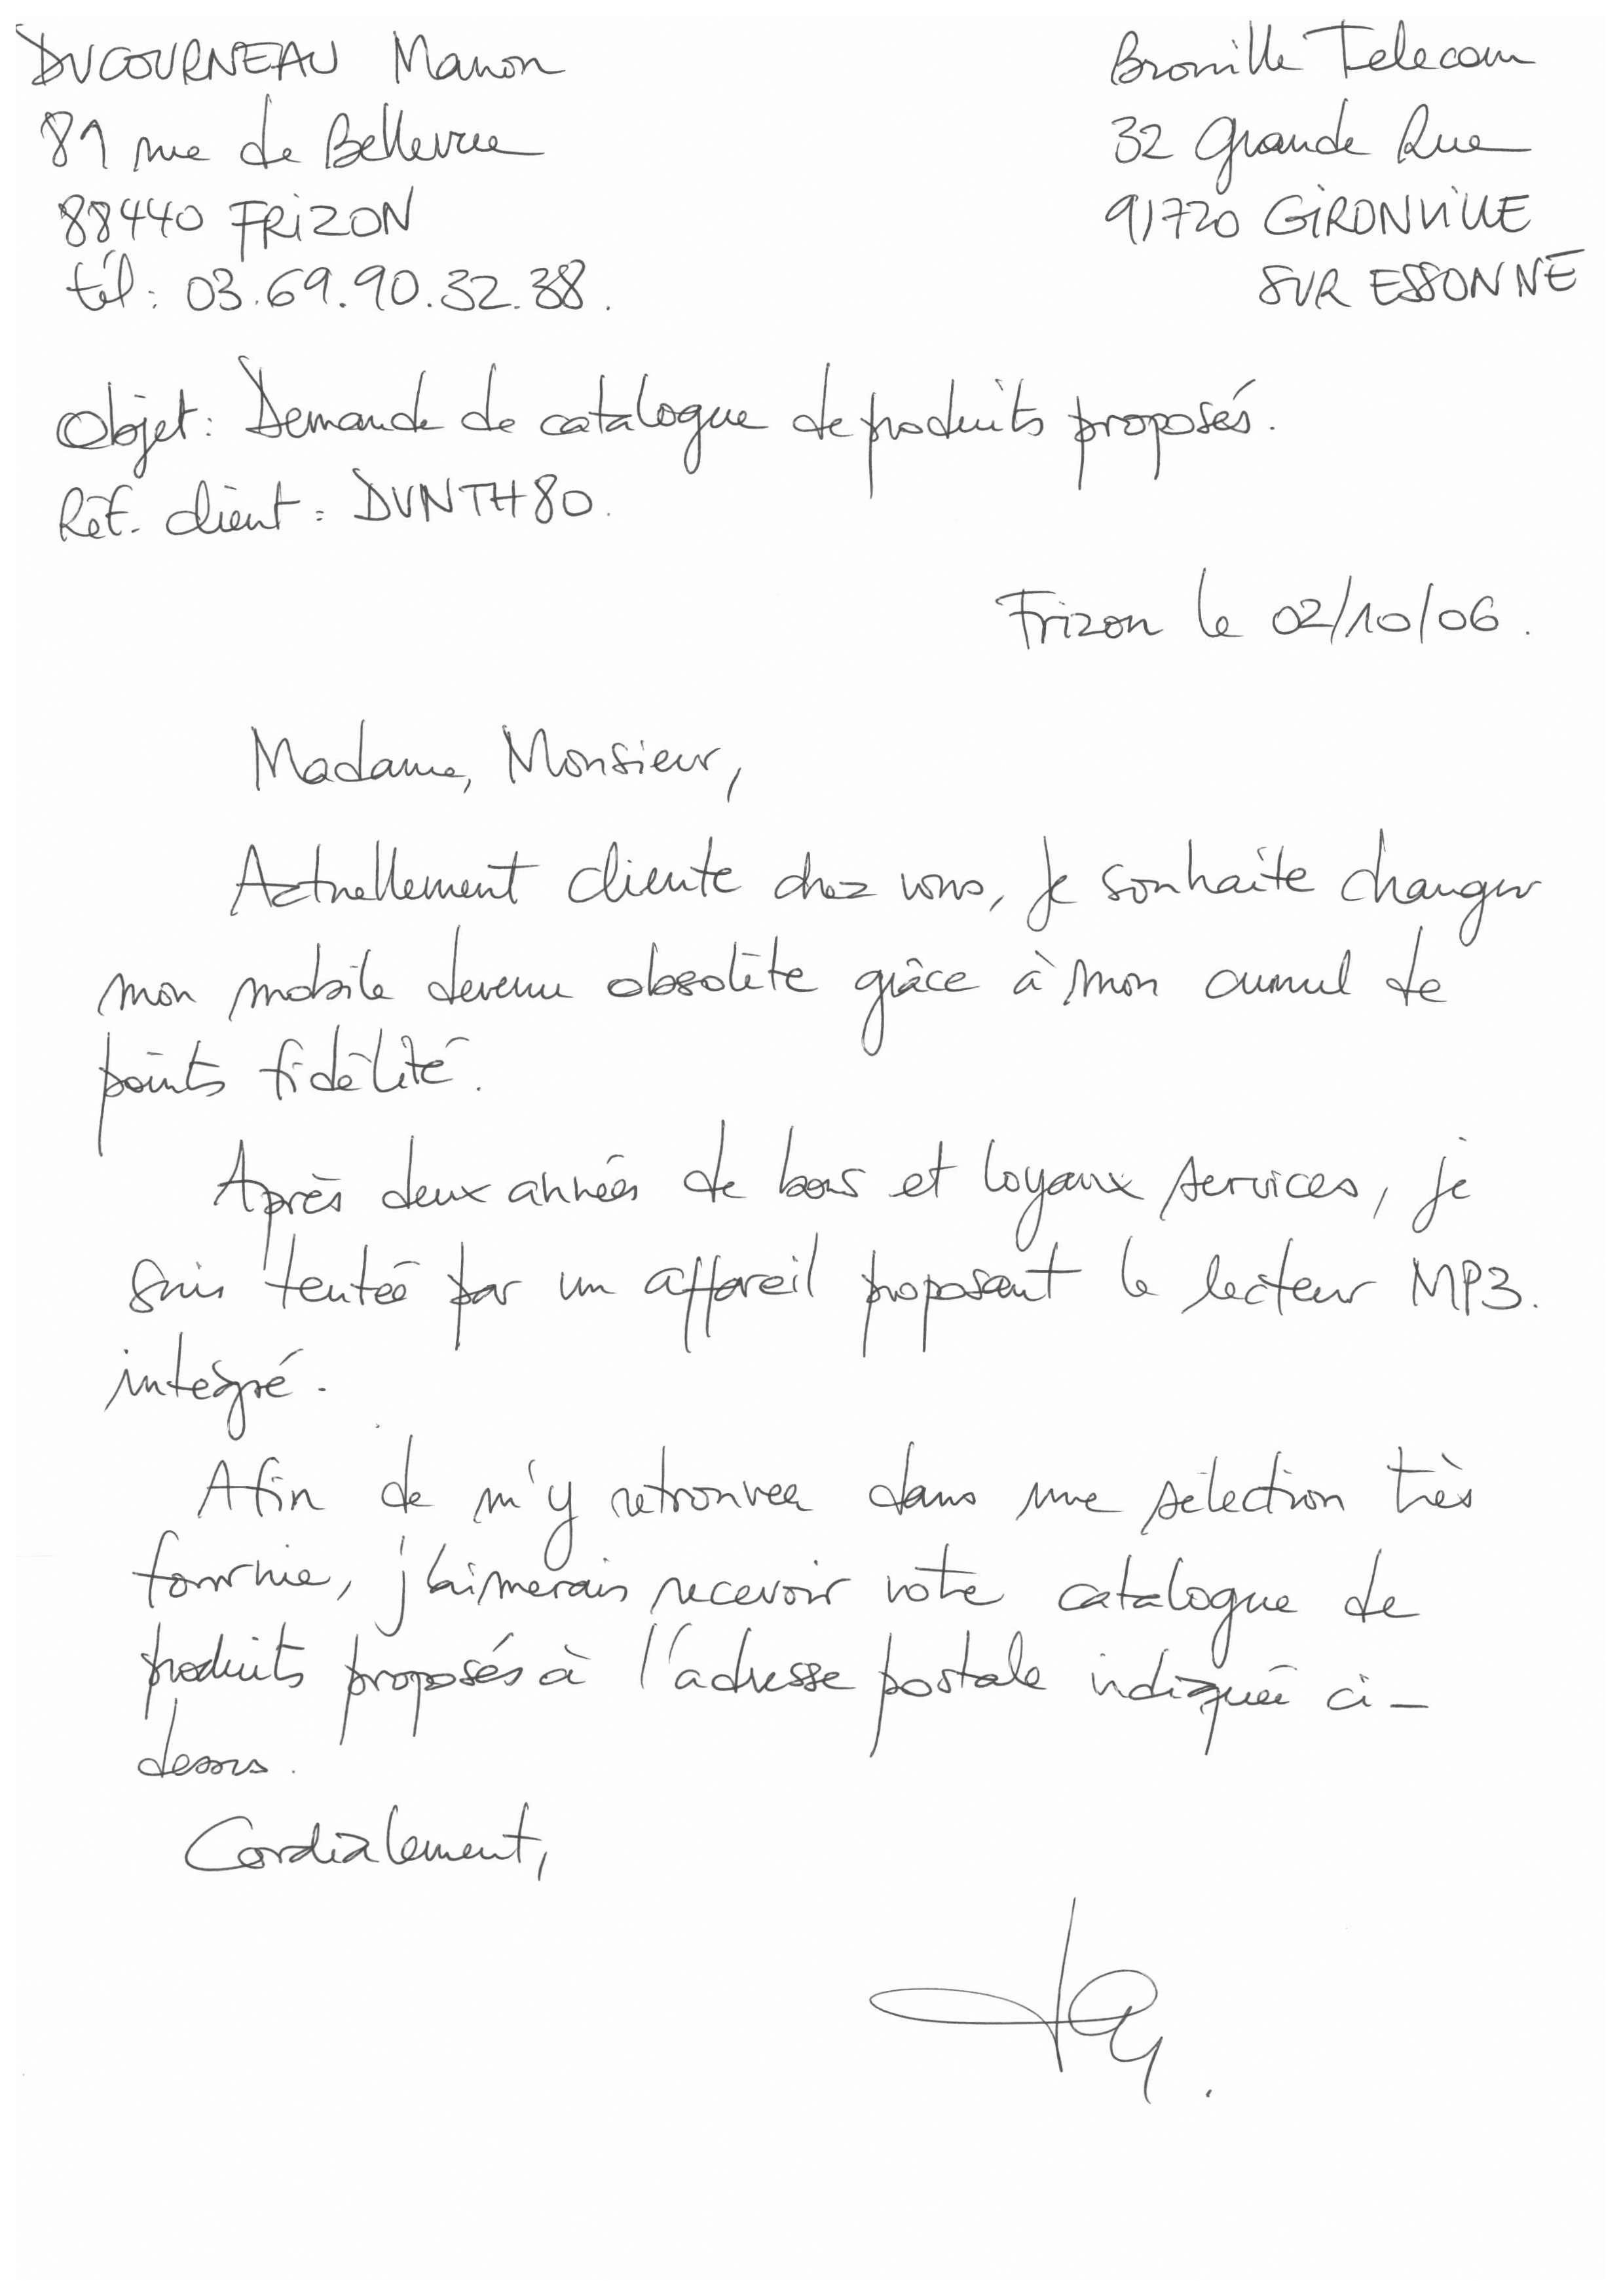 DUCOURNEAU Manon
81 rue de Bellevue
88440 FRIZON
tél : 03.69.90.32.38.
Bronville Telecom
32 Grande Rue
91720 GIRONVILLE
SUR ESSONNE
Objet : Demande de catalogue de produits proposés.
Réf. client : DVNTH80.
Frizon le 02/10/06.
Madame, Monsieur,
Actuellement cliente chez vous, je souhaite changer
mon mobile devenu obsolète grâce à mon cumul de
points fidélité.
Après deux années de bons et loyaux services, je
suis tentée par un appareil proposant le lecteur MP3.
intégré.
Afin de m'y retrouver dans une sélection très
fournie, j'aimerais recevoir votre catalogue de
produits proposés à l'adresse postale indiquée ci-
dessus.
Cordialement,